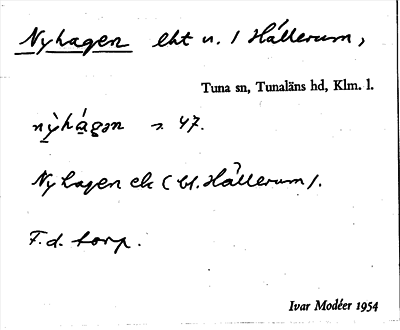 Nyhagen eht u. / Hållerum,
Tuna sn, Tunaläns hd, Klm. l.
nỳhágən s. 47.
Nyhagen ek ( bl. Hållerum).
F.d. torp.
Ivar Modéer 1954